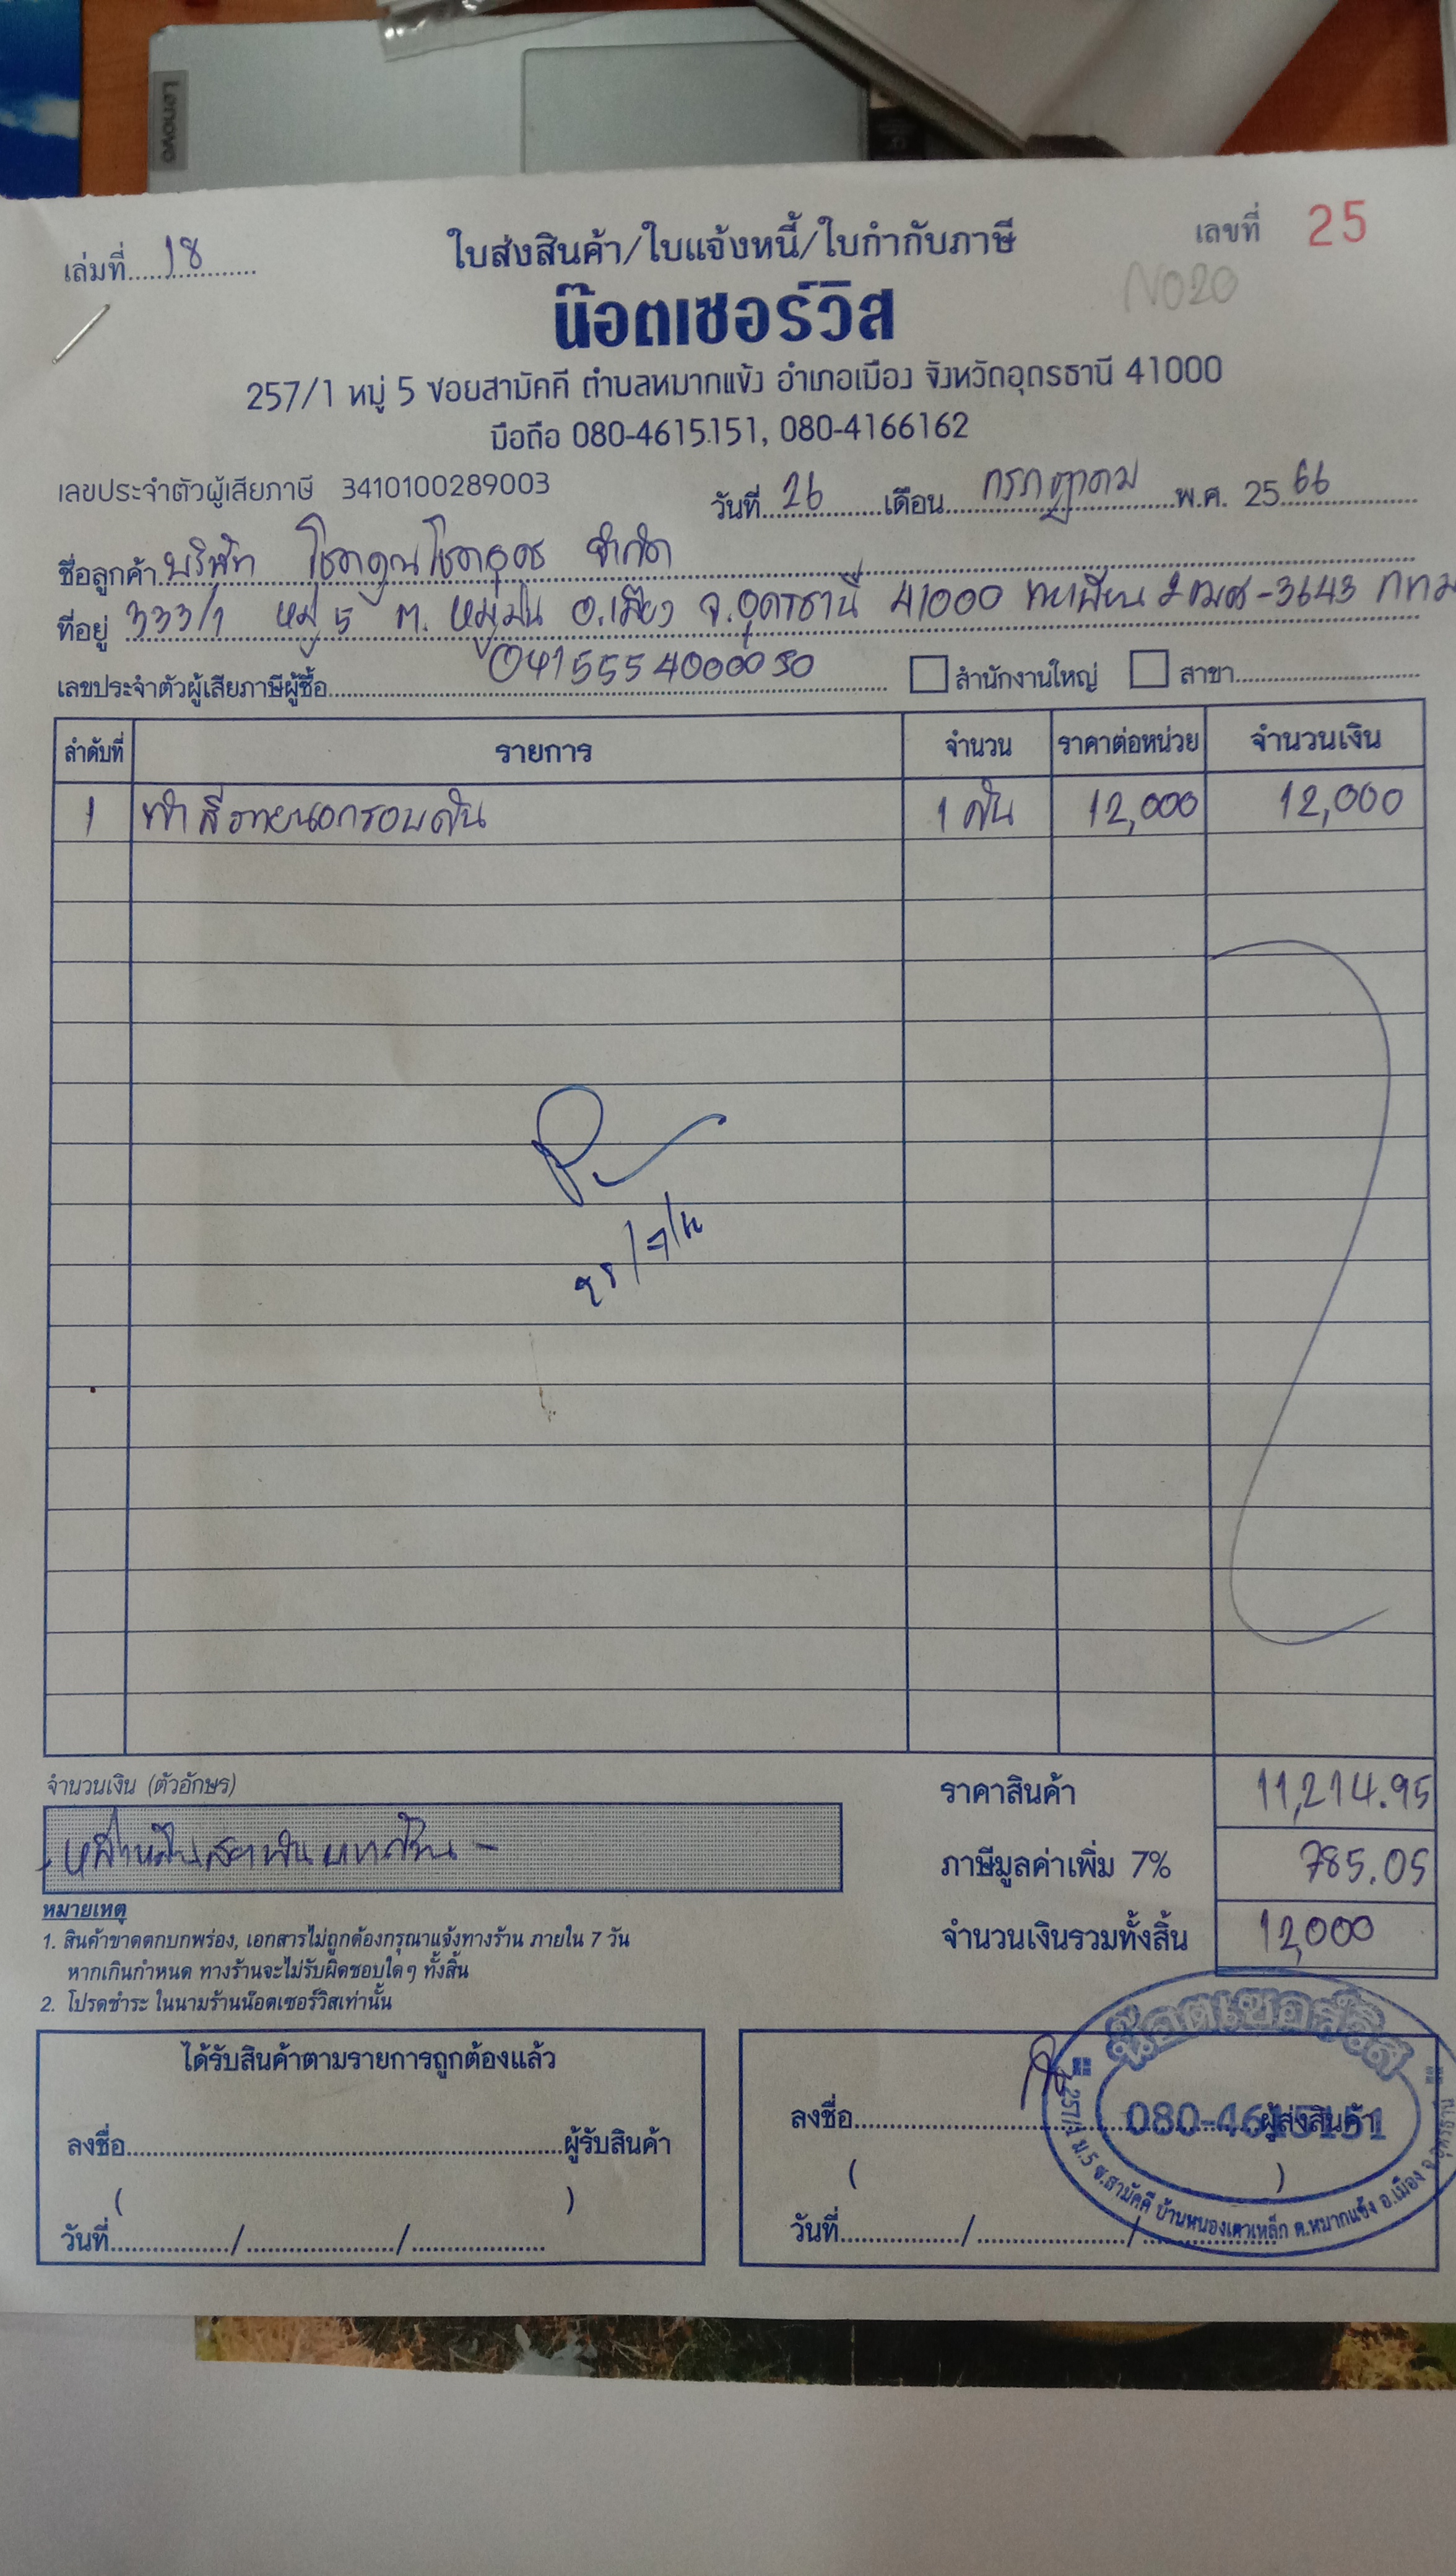 Lenovo
เล่มที่ 18
ใบส่งสินค้า/ใบแจ้งหนี้/ใบกำกับภาษี
เลขที่ 25
NO20
น๊อตเซอร์วิส
257/1 หมู่ 5 ซอยสามัคคี ตำบลหมากแข้ง อำเภอเมือง จังหวัดอุดรธานี 41000
มือถือ 080-4615151, 080-4166162
เลขประจำตัวผู้เสียภาษี 3410100289003
วันที่ 26 เดือน กรกฎาคม พ.ศ. 2566
ชื่อลูกค้า บริษัท โชคคูณโชคธวช จำกัด
ที่อยู่ 333/1 หมู่ 5 ต. หมูม่น อ.เมือง จ.อุดรธานี 41000 ทะเบียน -3643 กทม
เลขประจำตัวผู้เสียภาษีผู้ซื้อ 0415554000050 สำนักงานใหญ่ สาขา
ลำดับที่ รายการ จำนวน ราคาต่อหน่วย จำนวนเงิน
1 ทำสีภายนอกรอบคัน 1 คัน 12,000 12,000
จำนวนเงิน (ตัวอักษร)
ราคาสินค้า 11,214.95
-หนึ่งหมื่นสองพันบาทถ้วน-
ภาษีมูลค่าเพิ่ม 7% 785.05
จำนวนเงินรวมทั้งสิ้น 12,000
หมายเหตุ
1. สินค้าขาดตกบกพร่อง, เอกสารไม่ถูกต้องกรุณาแจ้งทางร้าน ภายใน 7 วัน
หากเกินกำหนด ทางร้านจะไม่รับผิดชอบใดๆ ทั้งสิ้น
2. โปรดชำระ ในนามร้านน๊อตเซอร์วิสเท่านั้น
ได้รับสินค้าตามรายการถูกต้องแล้ว
ลงชื่อ ผู้รับสินค้า
( )
วันที่ / /
ลงชื่อ ผู้ส่งสินค้า
( )
วันที่ / /
น๊อตเซอร์วิส
080-4615151
257/1 ม.5 ซ.สามัคคี บ้านหนองเตาเหล็ก ต.หมากแข้ง อ.เมือง จ.อุดรธานี